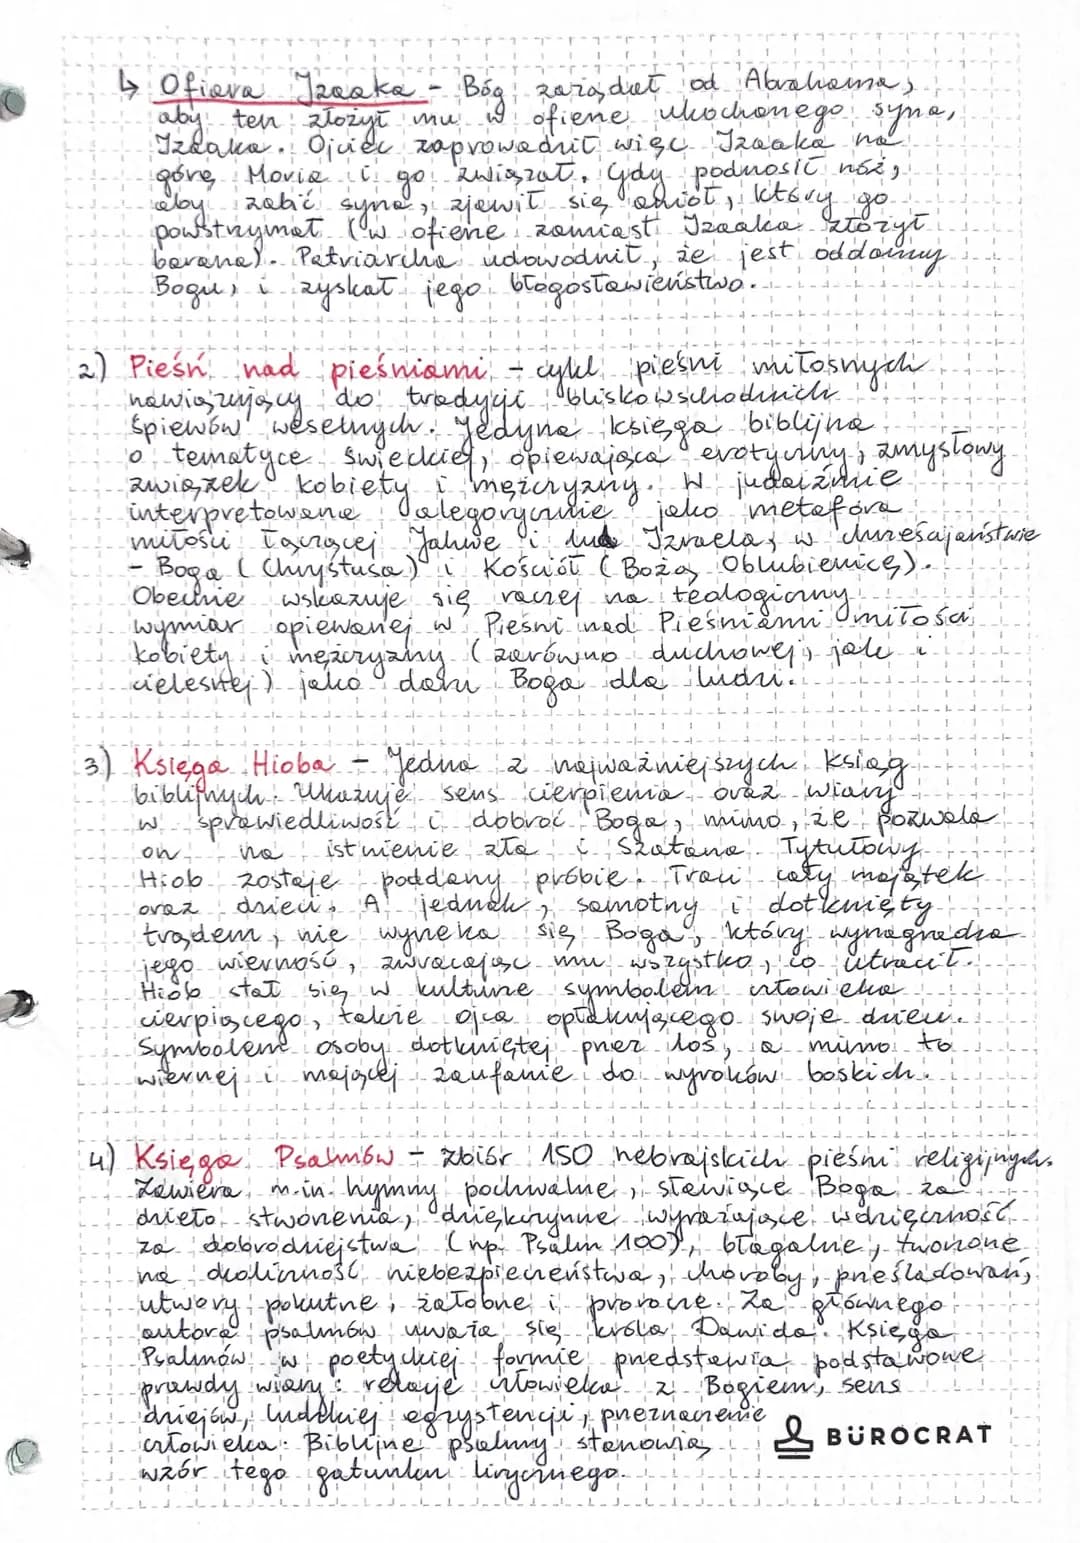 ↳ Ofiara Izaaka - Bóg zażądał od Abrahama,
aby ten złożył mu w ofierze ukochanego syna,
Izaaka. Ojciec zaprowadził więc Izaaka na
górę Moria i go związał. Gdy podnosił nóż,
aby zabić syna, zjawił się anioł, który go
powstrzymał (w ofierze zamiast Izaaka złożył
barana). Patriarcha udowodnił, że jest oddany
Bogu, i zyskał jego błogosławieństwo.
2) Pieśń nad pieśniami - cykl pieśni miłosnych
nawiązujący do tradycji bliskowschodnich
śpiewów weselnych. Jedyna księga biblijna
o tematyce świeckiej, opiewająca erotyczny, zmysłowy
związek kobiety i mężczyzny. W judaiźmie
interpretowana alegorycznie jako metafora
miłości łączącej Jahwe i lud Izraela, w chrześcijaństwie
- Boga (Chrystusa) i Kościół (Bożą Oblubienicę).
Obecnie wskazuje się raczej na teologiczny
wymiar opiewanej w Pieśni nad Pieśniami miłości
kobiety i mężczyzny (zarówno duchowej, jak i
cielesnej) jako daru Boga dla ludzi.
3) Księga Hioba - Jedna z najważniejszych ksiąg
biblijnych. Ukazuje sens cierpienia oraz wiary
w sprawiedliwość i dobroć Boga, mimo, że pozwala
on na istnienie zła i Szatana. Tytułowy
Hiob zostaje poddany próbie. Traci cały majątek
oraz dzieci. A jednak, samotny i dotknięty
trądem, nie wyrzeka się Boga, który wynagradza
jego wierność, zwracając mu wszystko, co utracił.
Hiob stał się w kulturze symbolem człowieka
cierpiącego, także ojca opłakującego swoje dzieci.
Symbolem osoby dotkniętej przez los, a mimo to
wiernej i mającej zaufanie do wyroków boskich.
4) Księga Psalmów - zbiór 150 hebrajskich pieśni religijnych.
Zawiera m.in. hymny pochwalne, sławiące Boga za
dzieło stworzenia, dziękczynne wyrażające wdzięczność
za dobrodziejstwa (np. Psalm 100), błagalne, tworzone
na okoliczność niebezpieczeństwa, choroby, prześladowań,
utwory pokutne, żałobne i prorocze. Za głównego
autora psalmów uważa się króla Dawida. Księga
Psalmów w poetyckiej formie przedstawia podstawowe
prawdy wiary: relacje człowieka z Bogiem, sens
dziejów, ludzkiej egzystencji, przeznaczenie
człowieka. Biblijne psalmy stanowią
wzór tego gatunku lirycznego.
BÜROCRAT